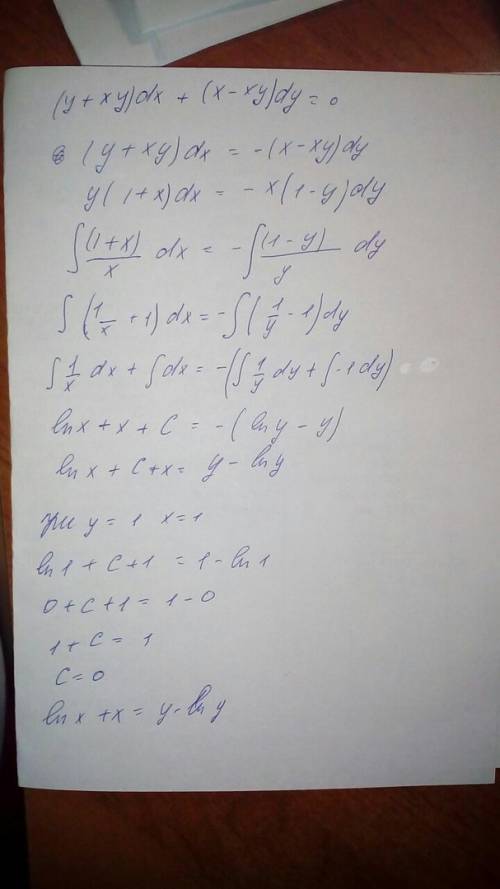 (y + xy)dx + (x - xy)dy = 0
(y + xy)dx = -(x - xy)dy
y(1 + x)dx = - x(1 - y)dy
∫ (1+x)/x dx = - ∫ (1 - y)/y dy
∫ (1/x + 1) dx = - ∫ (1/y - 1) dy
∫ 1/x dx + ∫ dx = - (∫ 1/y dy + ∫ -1 dy)
ln x + x + C = - (ln y - y)
ln x + C + x = y - ln y
при y = 1 x = 1
ln 1 + C + 1 = 1 - ln 1
0 + C + 1 = 1 - 0
1 + C = 1
C = 0
ln x + x = y - ln y